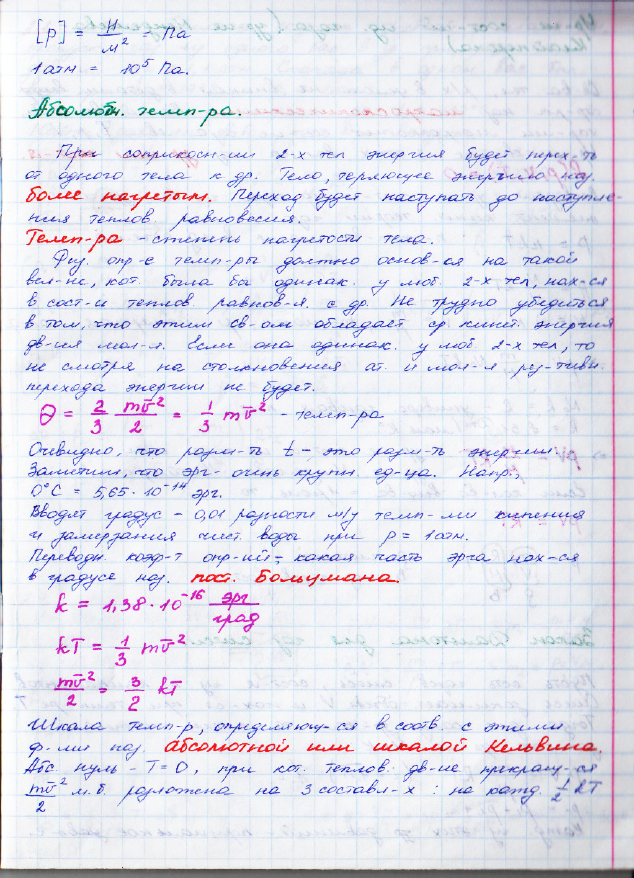 [p] = Н/м² = Па
1атм = 10⁵ Па.
Абсолютн. темп-ра.
При соприкосн-ии 2-х тел энергия будет перех-ть
от одного тела к др. Тело, теряющее энергию наз.
более нагретым. Переход будет наступать до наступле-
ния теплов. равновесия.
Темп-ра - степень нагретости тела.
Физ. опр-е темп-ры должно основ-ся на такой
вел-не, кот. была бы одинак. у люб. 2-х тел, нах-ся
в сост-и теплов равнов-я. с др. Не трудно убедиться
в том, что этим св-ом обладает ср. кинет. энергия
дв-ия мол-л. Если она одинак. у люб 2-х тел, то
не смотря на столкновения ат. и мол-л
перехода энергии не будет.
Θ = 2/3 mv̄²/2 = 1/3 mv̄² - темп-ра
Очевидно, что разм-ть t - это разм-ть энергии.
Заметим, что эрг- очень крупн. ед-ца. Напр.,
0°C = 5,65·10⁻¹⁴ эрг.
Вводят градус - 0,01 разности м/у темп-ми кипения
и замерзания чист. воды при p = 1атм.
Переводн. коэф-т опр-ий - какая часть эрга нах-ся
в градусе наз. пост. Больцмана.
k = 1,38·10⁻¹⁶ эрг/град
kT = 1/3 mv̄²
mv̄²/2 = 3/2 kT
Шкала темп-р, определяющ-ся в соотв. с этими
ф-ми наз. абсолютной или шкалой Кельвина.
Абс. нуль - T=0, при кот. теплов. дв-ие прекращ-ся
mv̄²/2 м.б. разложена на 3 составл-х : на кажд. 1/2 kT